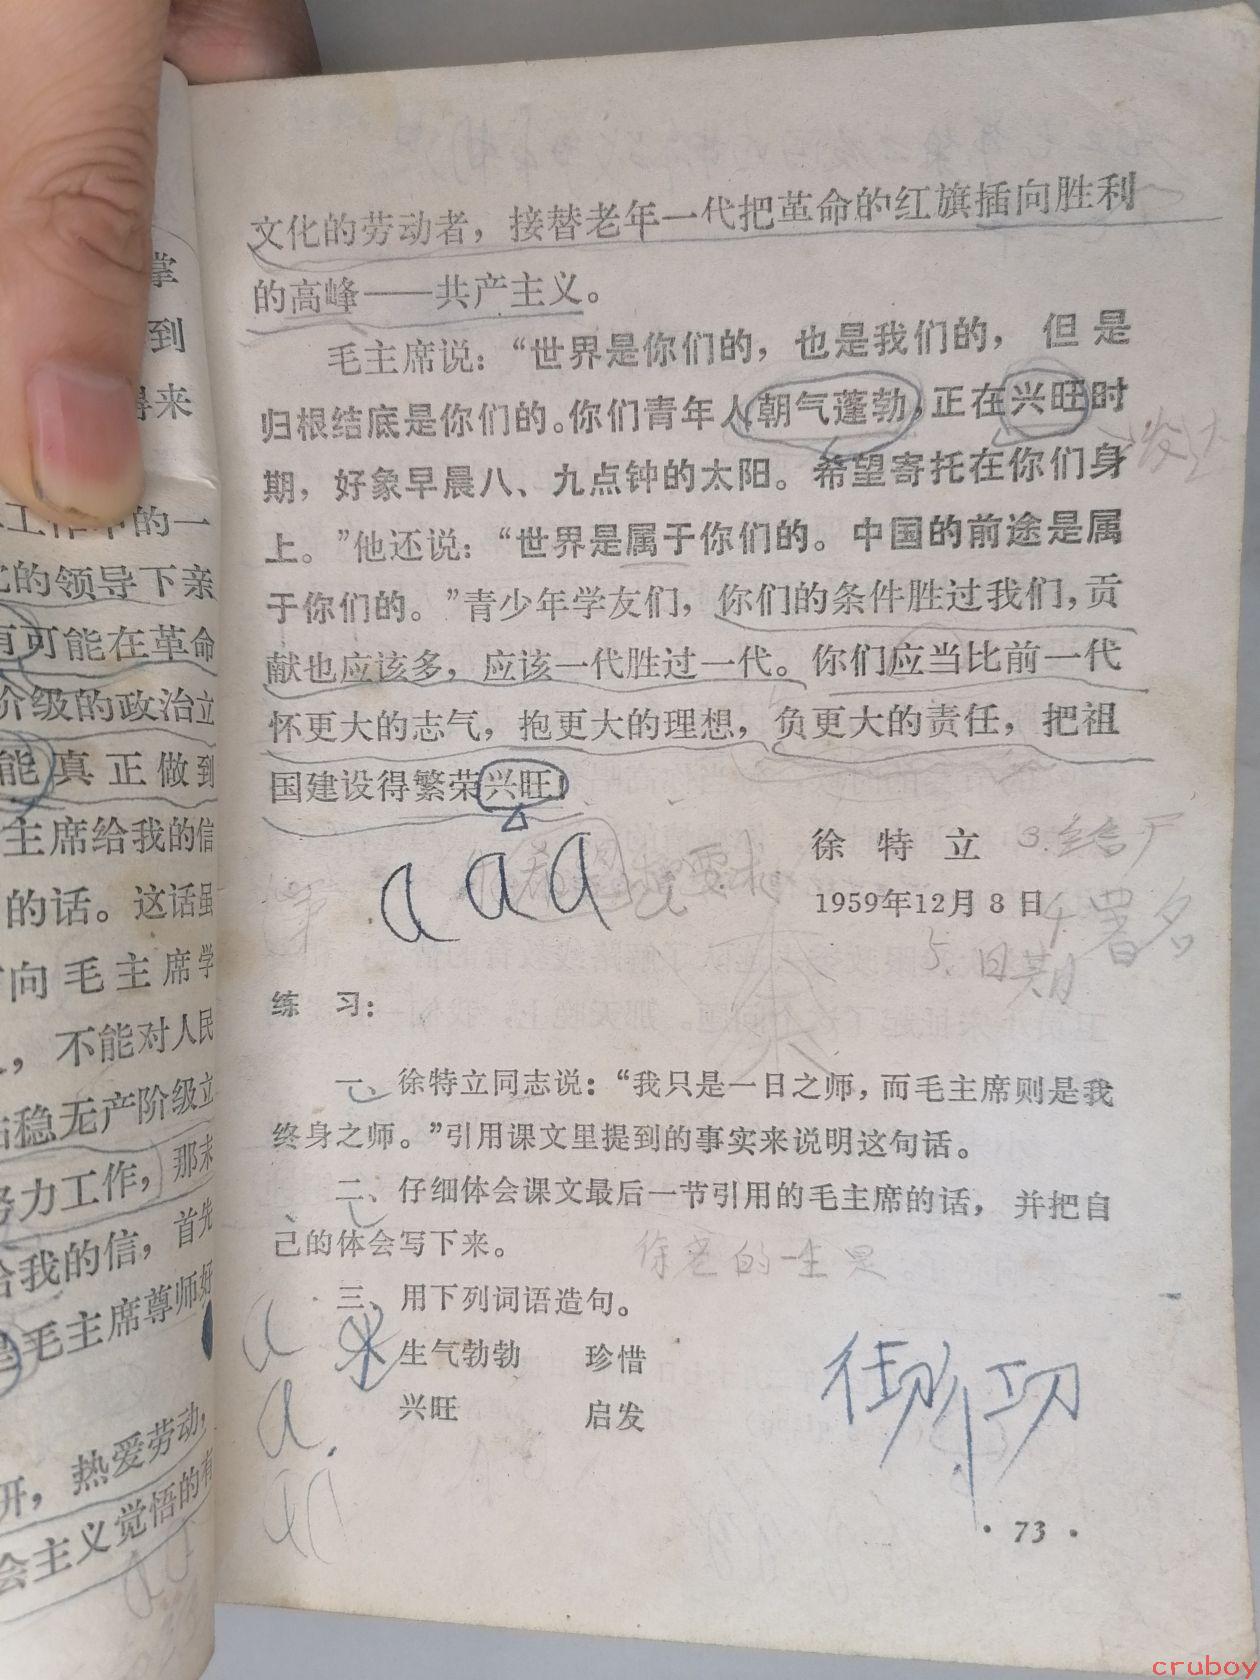 掌
到
来
工作中的一
的领导下亲
可能在革命
阶级的政治立
能真正做到
主席给我的信
的话。这话虽
向毛主席学
，不能对人民
站稳无产阶级立
努力工作，那末
给我的信，首先
是毛主席尊师好
研，热爱劳动，
会主义觉悟的有
文化的劳动者，接替老年一代把革命的红旗插向胜利
的高峰——共产主义。
毛主席说：“世界是你们的，也是我们的，但是
归根结底是你们的。你们青年人朝气蓬勃，正在兴旺时
期，好象早晨八、九点钟的太阳。希望寄托在你们身
上。”他还说：“世界是属于你们的。中国的前途是属
于你们的。”青少年学友们，你们的条件胜过我们，贡
献也应该多，应该一代胜过一代。你们应当比前一代
怀更大的志气，抱更大的理想，负更大的责任，把祖
国建设得繁荣兴旺！
a a a
徐特立
1959年12月8日
4.署名
5.日期
练 习：
一、徐特立同志说：“我只是一日之师，而毛主席则是我
终身之师。”引用课文里提到的事实来说明这句话。
二、仔细体会课文最后一节引用的毛主席的话，并把自
己的体会写下来。
徐老的一生是
三、用下列词语造句。
生气勃勃 珍惜
兴旺 启发
a
a
·73·
cruboy